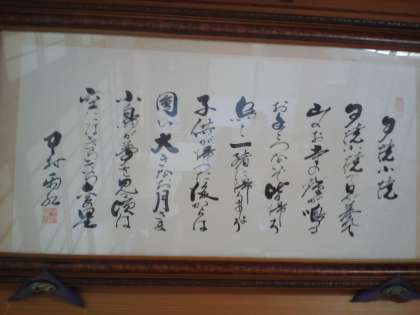 夕焼小焼
夕焼小焼で日が暮れて
山のお寺の鐘が鳴る
おててつないで皆帰ろ
烏と一緒に帰りましょ
子供が帰った後からは
圓い大きなお月さま
小鳥が夢を見る頃は
空にはきらきら金の星
中村雨紅